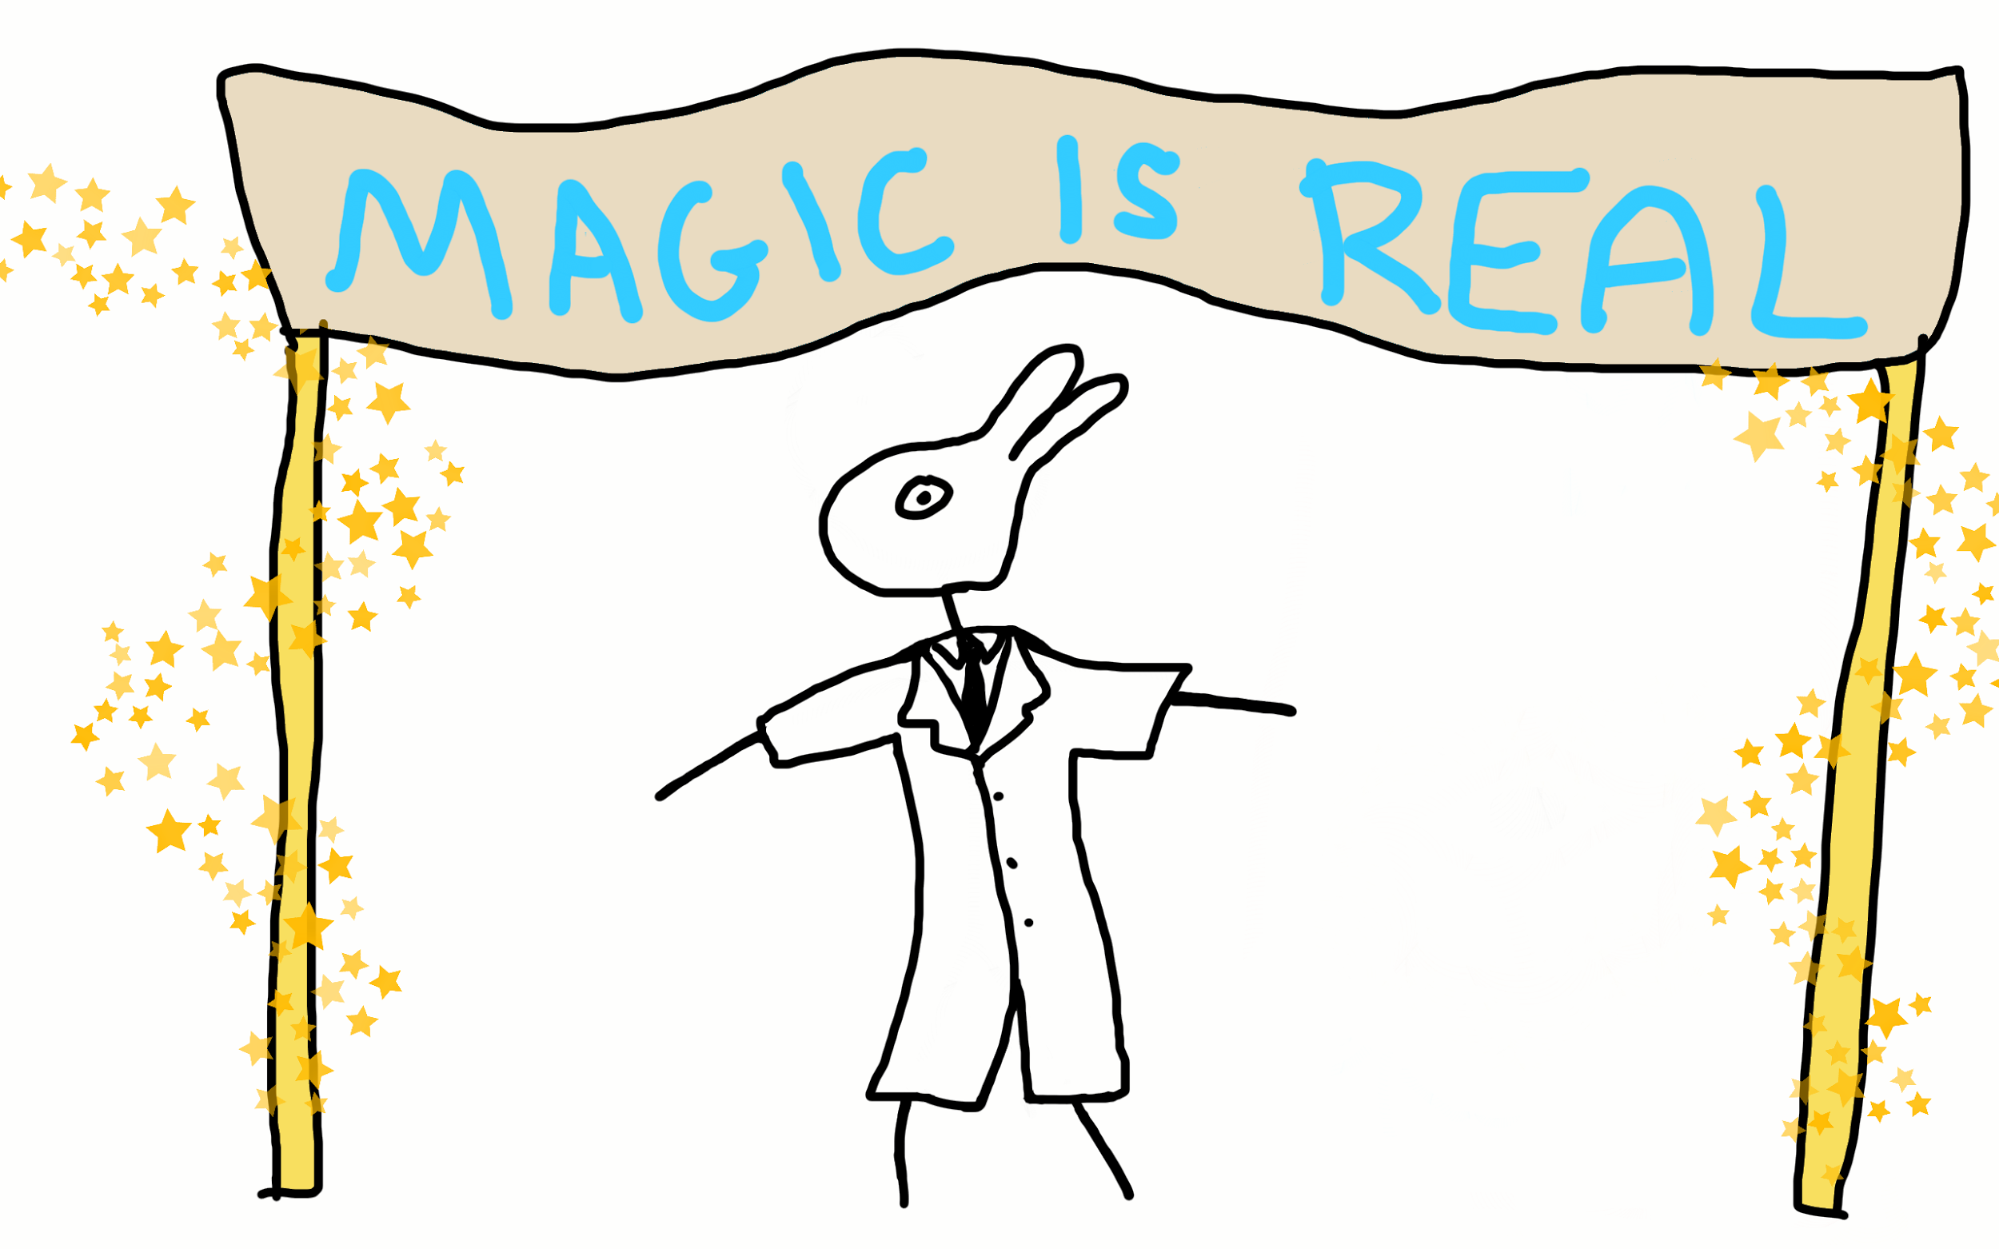 MAGIC IS REAL